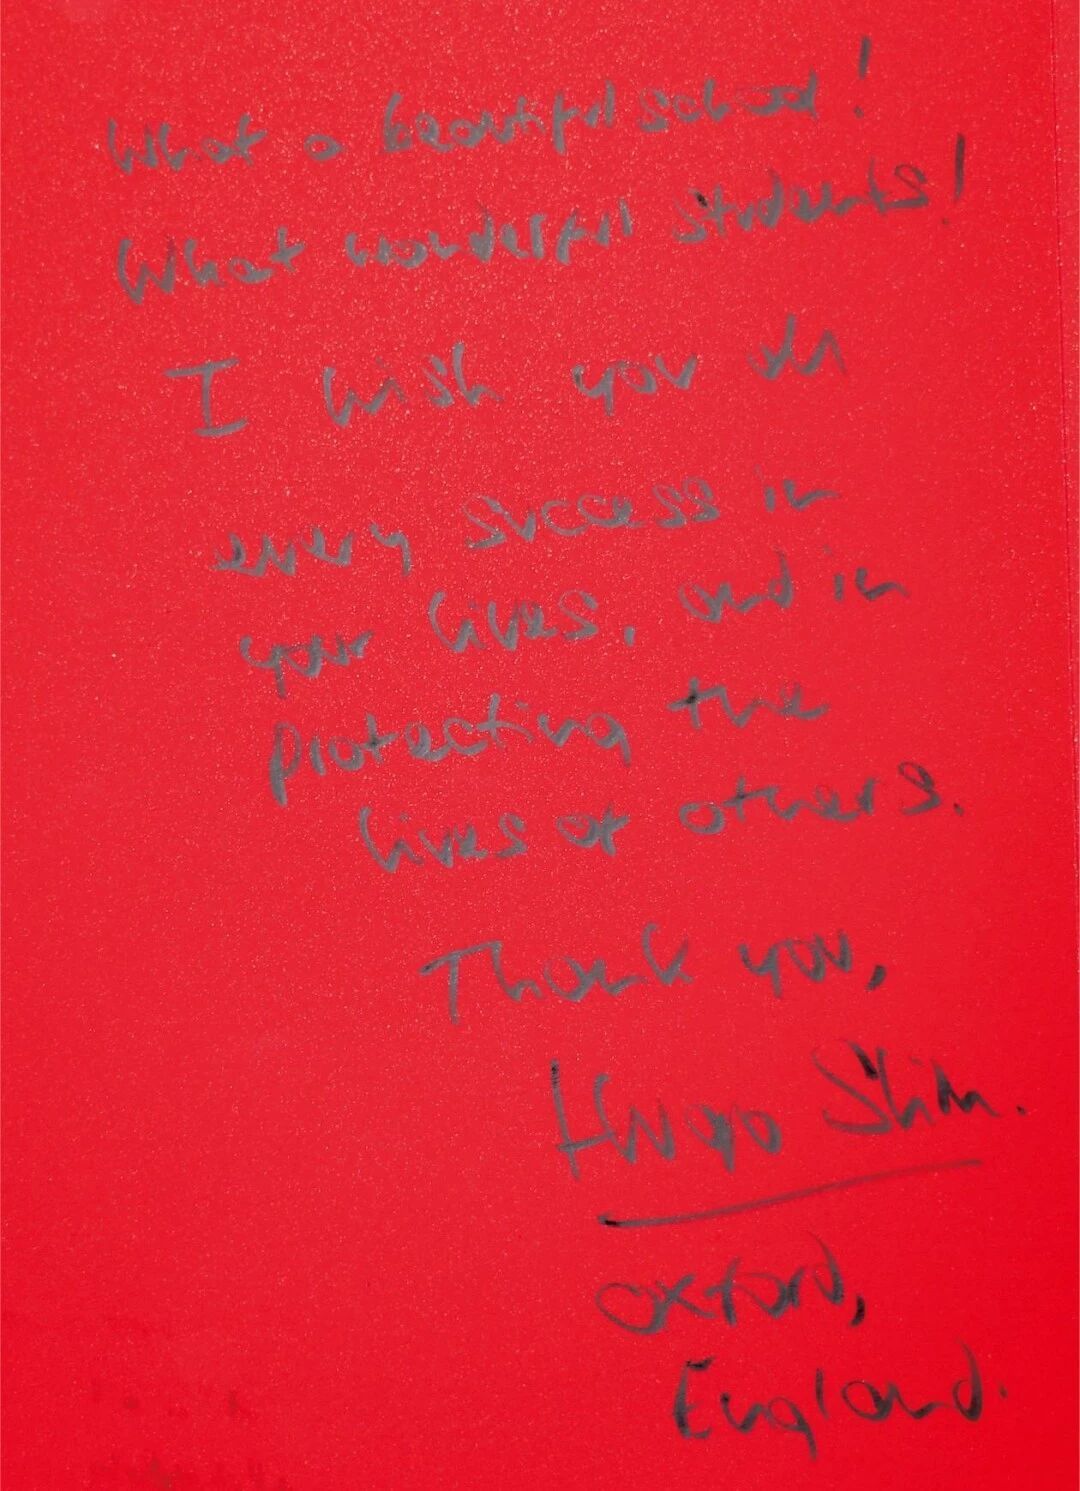 What a beautiful school!
What wonderful students!
I wish you all
every success in
your lives, and in
protecting the
lives of others.
Thank you,
Hugo
Oxford,
England.